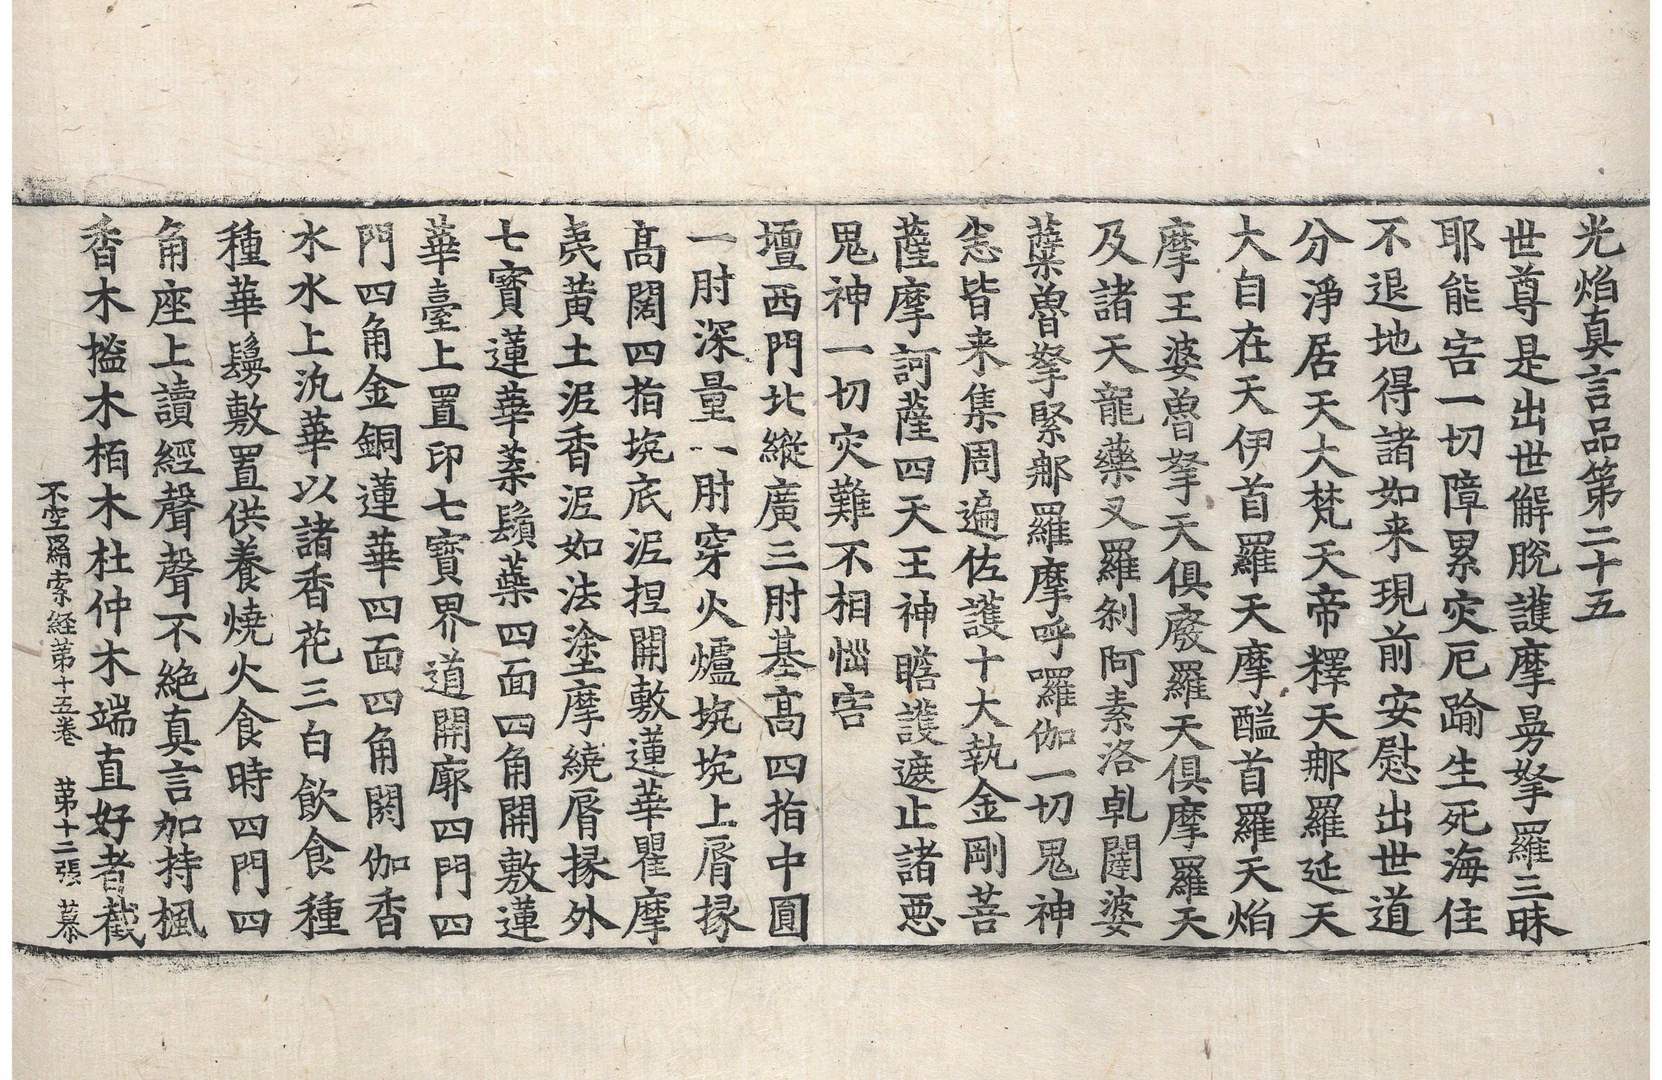 光焰真言品第二十五
世尊是出世解脫護摩曼拏羅三昧
耶能害一切障累灾厄踰生死海住
不退地得諸如来現前安慰出世道
分淨居天大梵天帝釋天那羅延天
大自在天伊首羅天摩醯首羅天焰
摩王婆嚕拏天俱廢羅天俱摩羅天
及諸天龍藥叉羅剎阿素洛乹闥婆
蘖嚕拏緊那羅摩呼囉伽一切鬼神
悉皆来集周遍佐護十大執金剛菩
薩摩訶薩四天王神瞻護遮止諸惡
鬼神一切灾難不相惱害
壇西門北縱廣三肘基高四指中圓
一肘深量一肘穿火爐埦埦上脣掾
高闊四指埦底泥捏開敷蓮華瞿摩
夷黃土泥香泥如法塗摩繞脣掾外
七寶蓮華葉鬚蘂四面四角開敷蓮
華臺上置印七寶界道開廓四門四
門四角金銅蓮華四面四角閼伽香
水水上汎華以諸香花三白飲食種
種華鬘敷置供養燒火食時四門四
角座上讀經聲聲不絶真言加持楓
香木搵木栢木杜仲木端直好者截
不空羂索経苐十五卷 苐十二張 慕